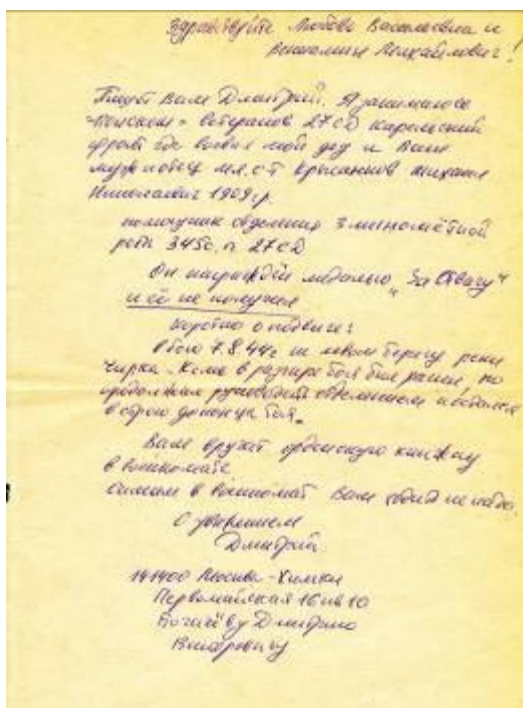 Здравствуйте Любовь Васильевна и
Вениамин Михайлович!
Пишет Вам Дмитрий. Я занимаюсь
"поиском" ветеранов 27 СД Карельский
фронт где воевал мой дед и Ваш
муж и отец мл. с-т Крысанов Михаил
Николаевич 1909 г.р.
помощник отделения 3 миномётной
роты 345 с.п 27 СД
Он награждён медалью „За Отвагу"
и её не получил
Коротко о подвиге:
В бою 7.8.44г на левом берегу реки
Чирка-Кемь в разгаре боя был ранен, но
продолжал руководить отделением и остался
в строю до конца боя.
Вам вручат орденскую книжку
в военкомате
самим в военкомат Вам ходить не надо.
С уважением
Дмитрий
141400 Москва-Химки
Первомайская 16 кв 10
Дмитрию
Викторовичу